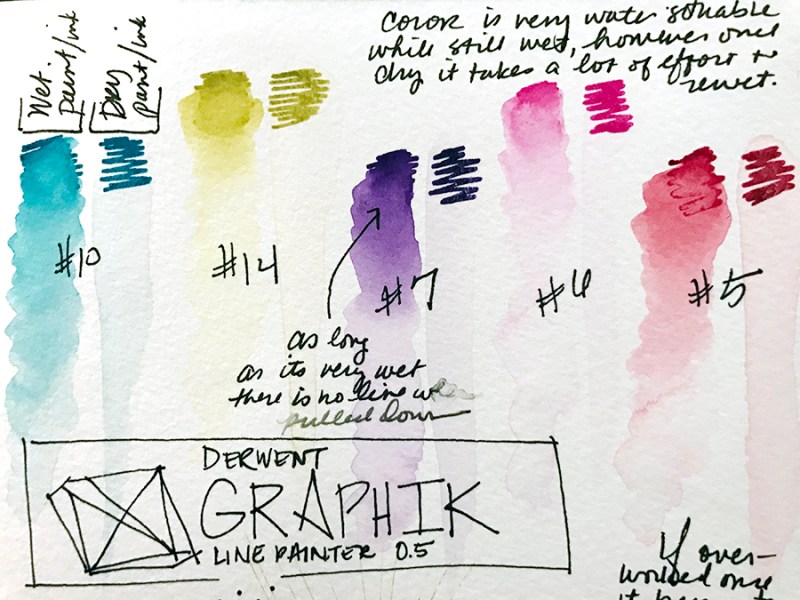 Wet paint/ink
Dry paint/ink
Color is very water soluable
while still wet, however once
dry it takes a lot of effort to
rewet.
#10
#14
#7
#6
#5
as long
as its very wet
there is no line when
pulled down
DERWENT
GRAPHIK
LINE PAINTER 0.5
If over-
worked once
it